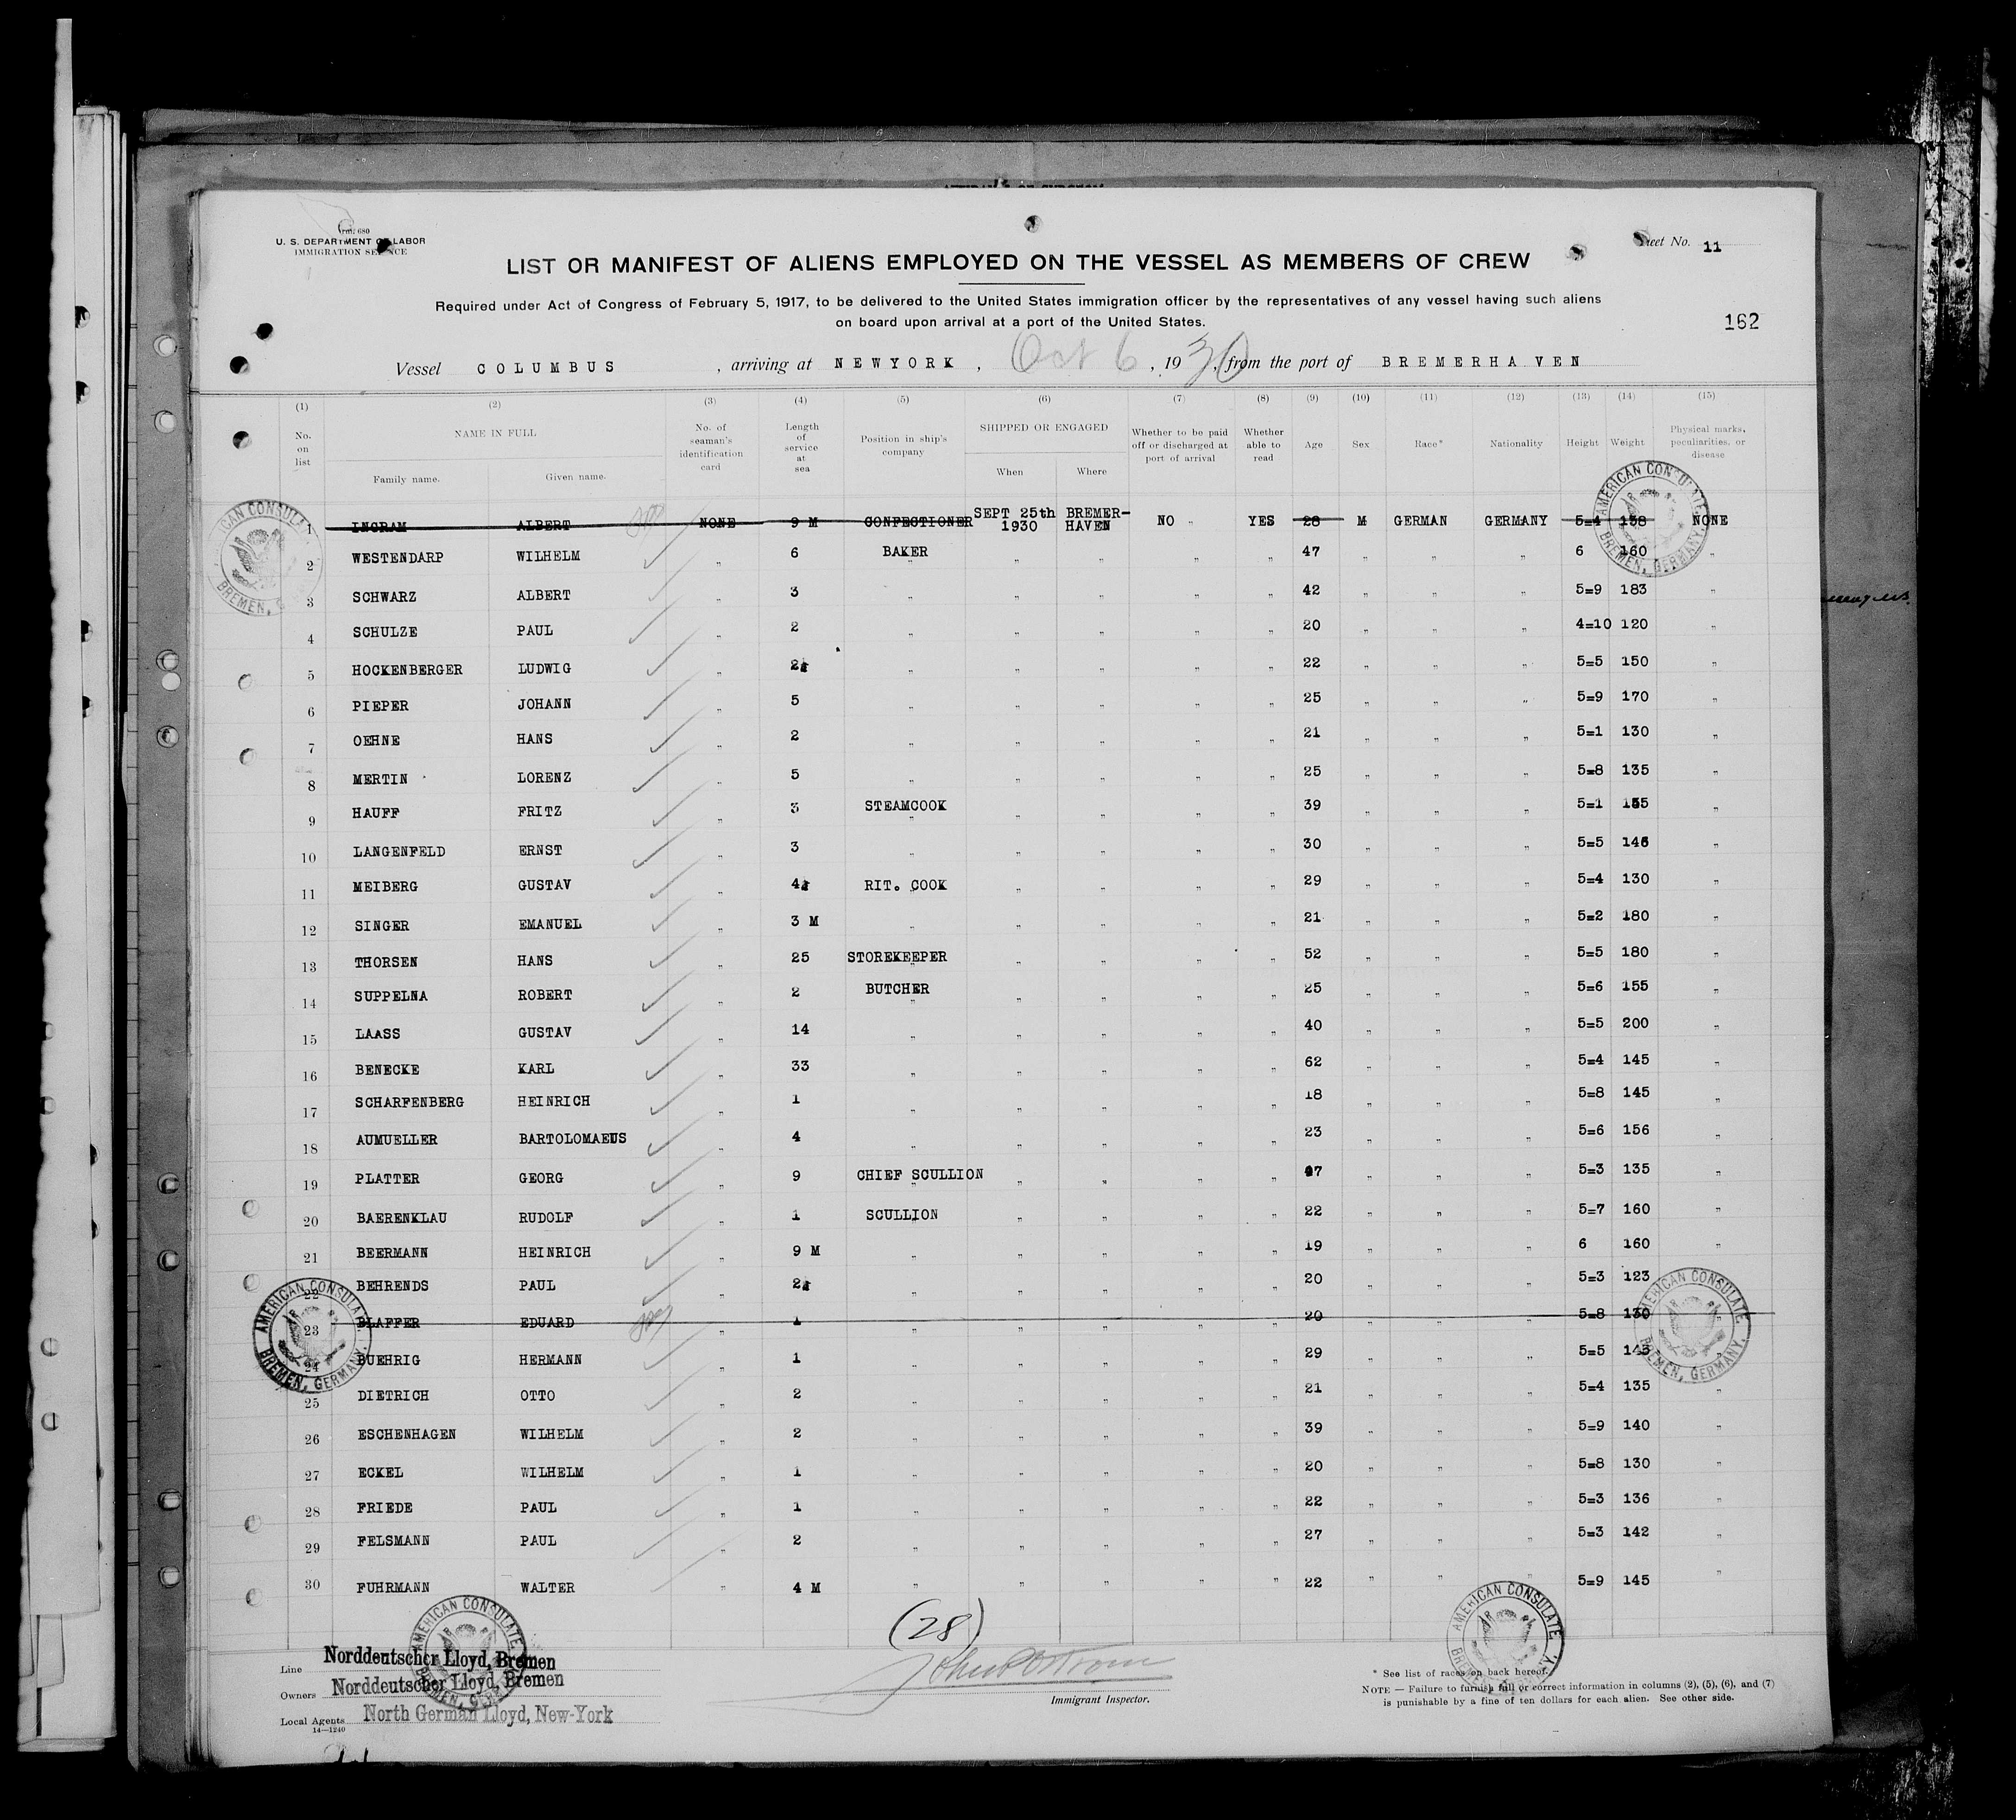 Form 680
U. S. DEPARTMENT OF LABOR
IMMIGRATION SERVICE
Sheet No. 11
LIST OR MANIFEST OF ALIENS EMPLOYED ON THE VESSEL AS MEMBERS OF CREW
Required under Act of Congress of February 5, 1917, to be delivered to the United States immigration officer by the representatives of any vessel having such aliens
on board upon arrival at a port of the United States.
162
Vessel COLUMBUS, arriving at NEWYORK, Oct 6, 1930, from the port of BREMERHAVEN
(1) (2) (3) (4) (5) (6) (7) (8) (9) (10) (11) (12) (13) (14) (15)
No. on list NAME IN FULL Family name. Given name. No. of seaman's identification card Length of service at sea Position in ship's company SHIPPED OR ENGAGED When Where Whether to be paid off or discharged at port of arrival Whether able to read Age Sex Race* Nationality Height Weight Physical marks, peculiarities, or disease
1 INGRAM ALBERT NONE 9 M CONFECTIONER SEPT 25th 1930 BREMER-HAVEN NO " YES 28 M GERMAN GERMANY 5=4 158 NONE
2 WESTENDARP WILHELM " 6 BAKER " " " " 47 " " " 6 160 "
3 SCHWARZ ALBERT " 3 " " " " " 42 " " " 5=9 183 "
4 SCHULZE PAUL " 2 " " " " " 20 " " " 4=10 120 "
5 HOCKENBERGER LUDWIG " 2½ " " " " " 22 " " " 5=5 150 "
6 PIEPER JOHANN " 5 " " " " " 25 " " " 5=9 170 "
7 OEHNE HANS " 2 " " " " " 21 " " " 5=1 130 "
8 MERTIN LORENZ " 5 " " " " " 25 " " " 5=8 135 "
9 HAUFF FRITZ " 3 STEAMCOOK " " " " 39 " " " 5=1 "
10 LANGENFELD ERNST " 3 " " " " " 30 " " " 5=5 146 "
11 MEIBERG GUSTAV " 4½ RIT. COOK " " " " 29 " " " 5=4 130 "
12 SINGER EMANUEL " 3 M " " " " " 21 " " " 5=2 180 "
13 THORSEN HANS " 25 STOREKEEPER " " " " 52 " " " 5=5 180 "
14 SUPPELNA ROBERT " 2 BUTCHER " " " " 25 " " " 5=6 155 "
15 LAASS GUSTAV " 14 " " " " " 40 " " " 5=5 200 "
16 BENECKE KARL " 33 " " " " " 62 " " " 5=4 145 "
17 SCHARFENBERG HEINRICH " 1 " " " " " 18 " " " 5=8 145 "
18 AUMUELLER BARTOLOMAEUS " 4 " " " " " 23 " " " 5=6 156 "
19 PLATTER GEORG " 9 CHIEF SCULLION " " " " 47 " " " 5=3 135 "
20 BAERENKLAU RUDOLF " 1 SCULLION " " " " 22 " " " 5=7 160 "
21 BEERMANN HEINRICH " 9 M " " " " " 19 " " " 6 160 "
22 BEHRENDS PAUL " 2½ " " " " " 20 " " " 5=3 123 "
23 BLAFFER EDUARD " 1 " " " " " 20 " " " 5=8 130
24 BUEHRIG HERMANN " 1 " " " " " 29 " " " 5=5 143 "
25 DIETRICH OTTO " 2 " " " " " 21 " " " 5=4 135 "
26 ESCHENHAGEN WILHELM " 2 " " " " " 39 " " " 5=9 140 "
27 ECKEL WILHELM " 1 " " " " " 20 " " " 5=8 130 "
28 FRIEDE PAUL " 1 " " " " " 22 " " " 5=3 136 "
29 FELSMANN PAUL " 2 " " " " " 27 " " " 5=3 142 "
30 FUHRMANN WALTER " 4 M " " " " " 22 " " " 5=9 145 "
AMERICAN CONSULATE, BREMEN, GERMANY.
AMERICAN CONSULATE, BREMEN, GERMANY.
AMERICAN CONSULATE, BREMEN, GERMANY.
AMERICAN CONSULATE, BREMEN, GERMANY.
AMERICAN CONSULATE, BREMEN, GERMANY.
AMERICAN CONSULATE, BREMEN, GERMANY.
(28)
Line Norddeutscher Lloyd, Bremen
Owners Norddeutscher Lloyd, Bremen
Local Agents North German Lloyd, New-York
14—1240
John P Ostrom
Immigrant Inspector.
* See list of races on back hereof.
NOTE — Failure to furnish full or correct information in columns (2), (5), (6), and (7)
is punishable by a fine of ten dollars for each alien. See other side.